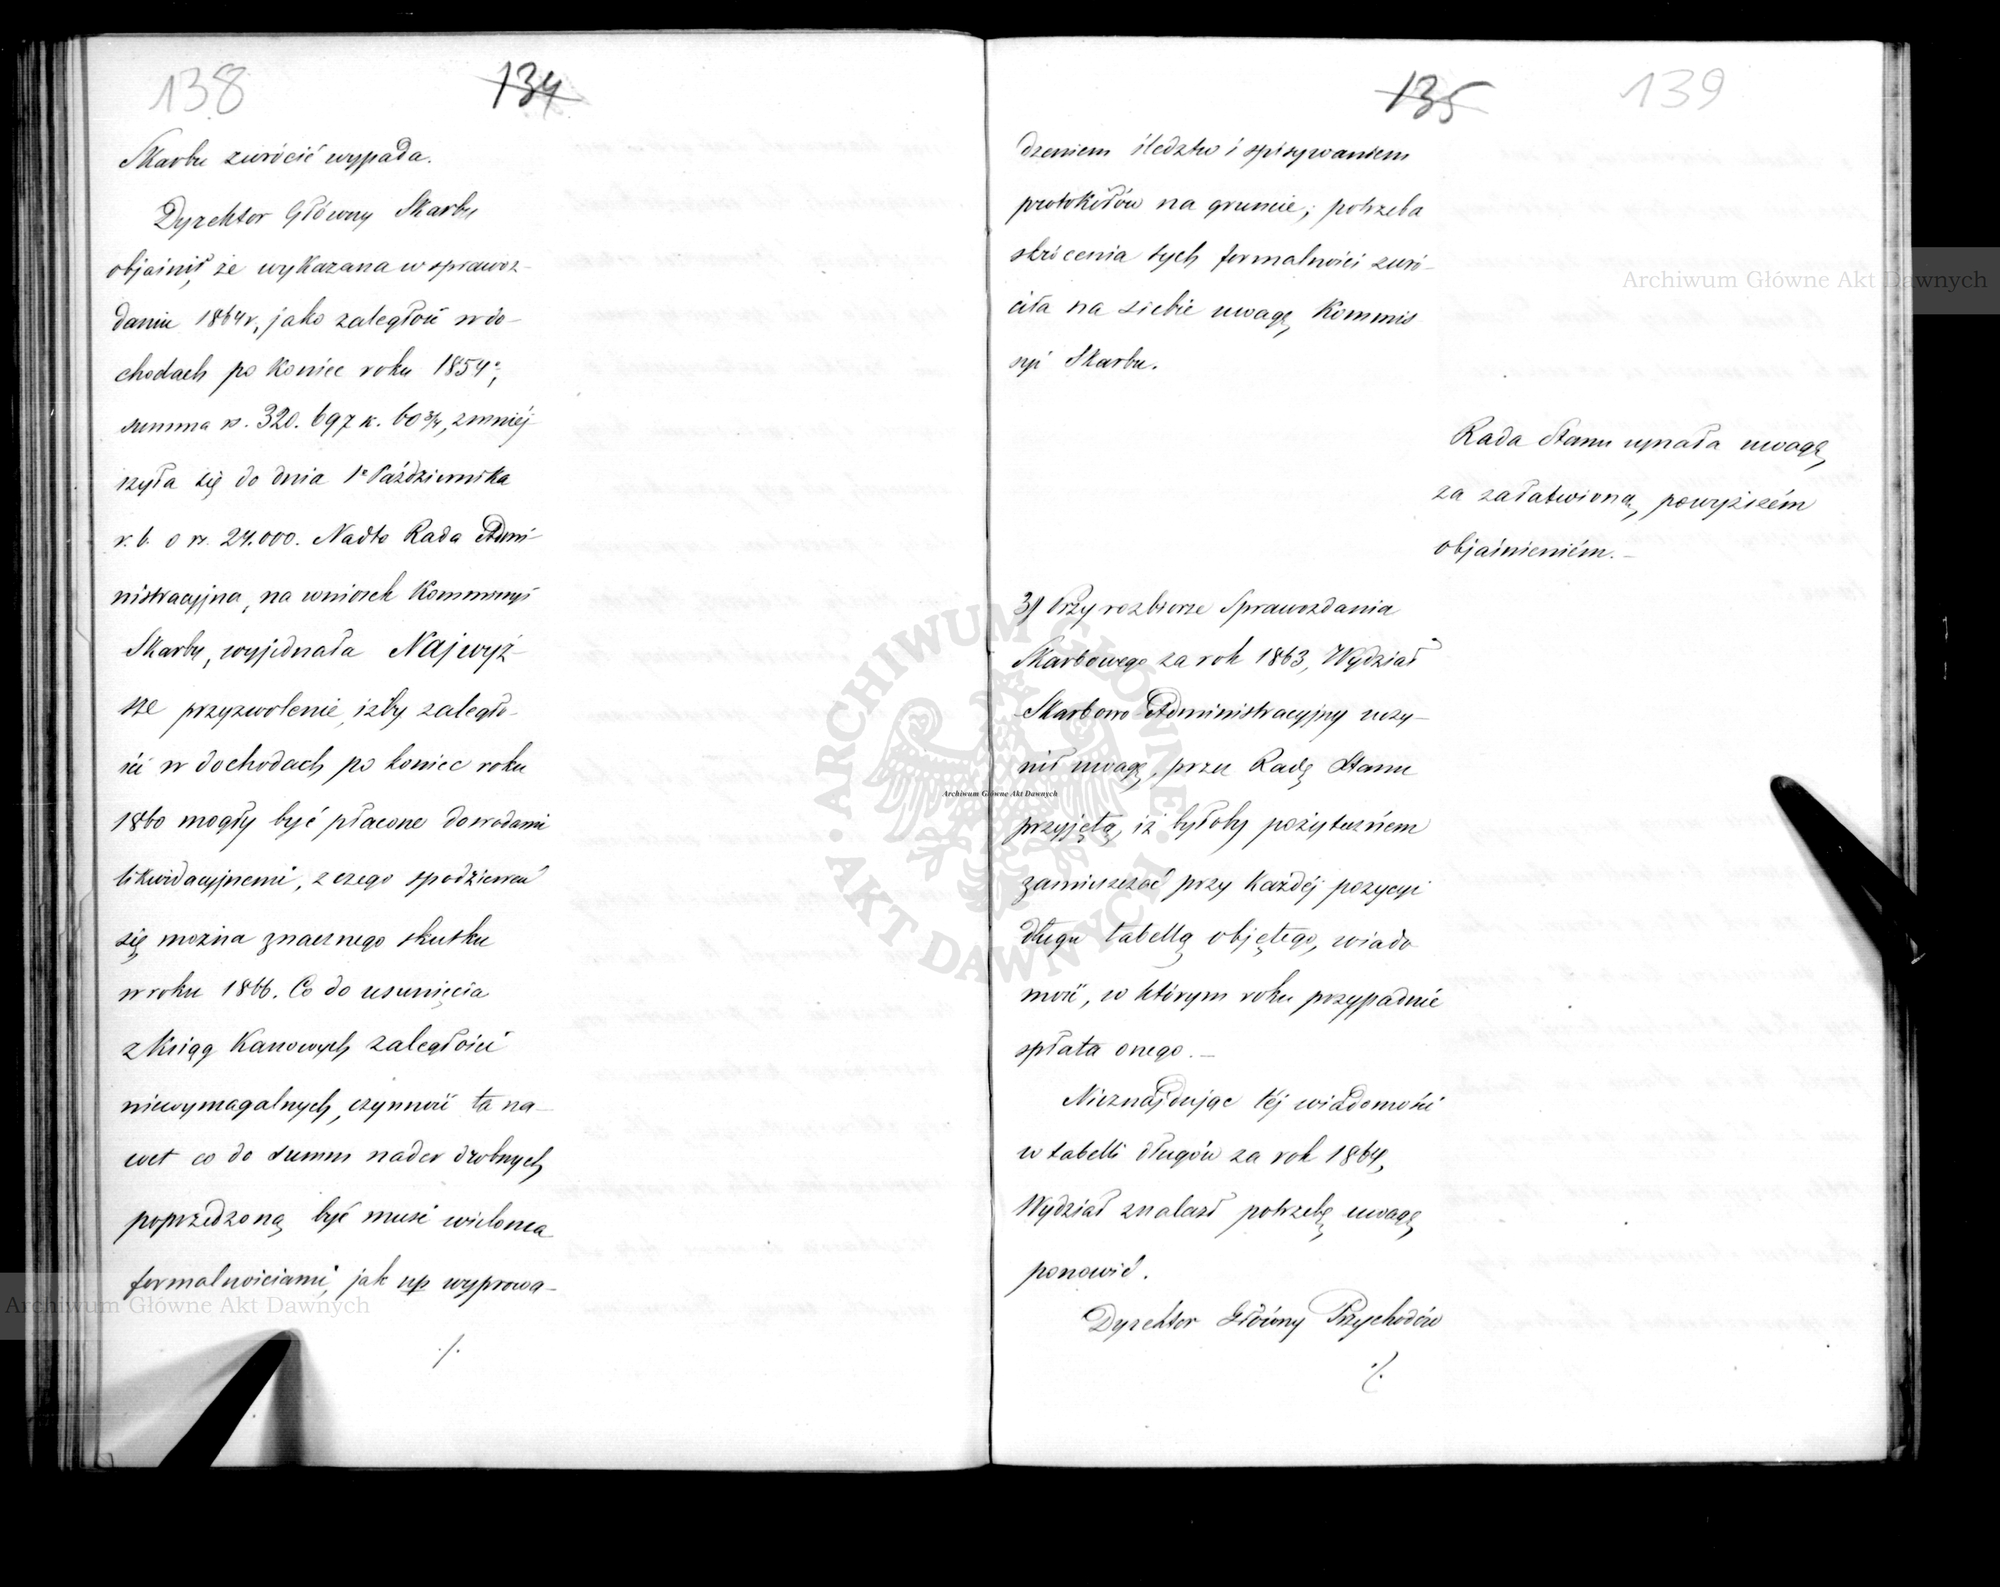 138
134
Skarbu zwrócić wypada.
Dyrektor Główny Skarbu
objaśnił, że wykazana w sprawoz-
daniu 1864 r, jako zaległość w do-
chodach po koniec roku 1854 r,
summa rs. 320.697 k. 60 3/4, zmniéj-
szyła się do dnia 1o Października
r. b. o rs. 24.000. Nadto Rada Admi-
nistracyjna, na wniosek Kommissyi
Skarbu, wyjednała Najwyż-
sze przyzwolenie, iżby zaległo-
ści w dochodach po koniec roku
1860 mogły być płacone dowodami
likwidacyjnemi, z czego spodziewać
się można znacznego skutku
w roku 1866. Co do usunięcia
z Ksiąg Kassowych zaległości
niewymagalnych, czynność ta na-
wet co do summ nader drobnych
poprzedzoną być musi wieloma
formalnościami, jak np wyprowa-
./.
135
139
dzeniem śledztw i spisywaniem
protokółów na gruncie; potrzeba
skrócenia tych formalności zwró-
ciła na siebie uwagę Kommis
syi Skarbu.
Rada Stanu uznała uwagę
za załatwioną powyższém
objaśnieniém.-
3) Przy rozbiorze Sprawozdania
Skarbowego za rok 1863, Wydział
Skarbowo-Administracyjny uczy-
nił uwagę, przez Radę Stanu
przyjętą, iż byłoby pożyteczném
zamieszczać przy każdéj pozycyi
długu tabellą objętego, wiado
mość, w którym roku przypadnie
spłata onego.-
Nieznajdując téj wiadomości
w tabelli długów za rok 1864,
Wydział znalazł potrzebę uwagę
ponowić.
Dyrektor Główny Przychodów
./.
Archiwum Główne Akt Dawnych
Archiwum Główne Akt Dawnych
Archiwum Główne Akt Dawnych
ARCHIWUM GŁÓWNE · AKT DAWNYCH ·